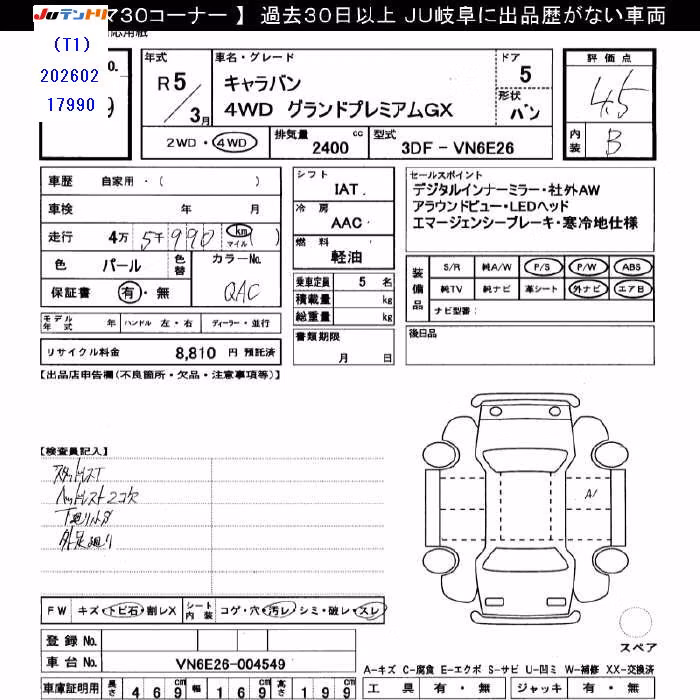 JUテントリ 730コーナー 】 過去30日以上 JU岐阜に出品歴がない車両
(T1)
202602
17990
年式 R 5 / 3月
車名・グレード
キャラバン
4WD グランドプレミアムGX
ドア 5
形状 バン
評価点 4.5
内装 B
2WD・4WD
排気量 2400 cc
型式 3DF-VN6E26
車歴 自家用・( )
車検 年 月
走行 4万 5千 990 km マイル ( )
色 パール 色替
カラーNo. QAC
保証書 有・無
シフト IAT
冷房 AAC
燃料 軽油
セールスポイント
デジタルインナーミラー・社外AW
アラウンドビュー・LEDヘッド
エマージェンシーブレーキ・寒冷地仕様
乗車定員 5 名
積載量 kg
総重量 kg
装備品 S/R 純A/W P/S P/W ABS
純TV 純ナビ 革シート 外ナビ エアB
ナビ型番:
モデル年式 年 ハンドル 左・右 ディーラー・並行
書類期限 月 日
後日品
リサイクル料金 8,810 円 預託済
【出品店申告欄(不良箇所・欠品・注意事項等)】
【検査員記入】
スタッドレスT
ヘッドレスト2コ欠
A1
FW キズ・トビ石・割レX
シート内装 コゲ・穴・汚レ・シミ・破レ・スレ
登録 No.
車台 No. VN6E26-004549
スペア
A-キズ C-腐食 E-エクボ S-サビ U-凹ミ W-補修 XX-交換済
車庫証明用 長さ 469cm 幅 169cm 高さ 199cm
工具 有・無 ジャッキ 有・無